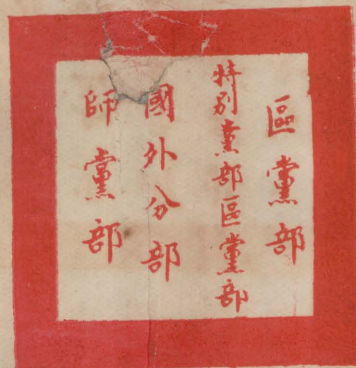 區黨部
特別黨部區黨部
國外分部
師黨部